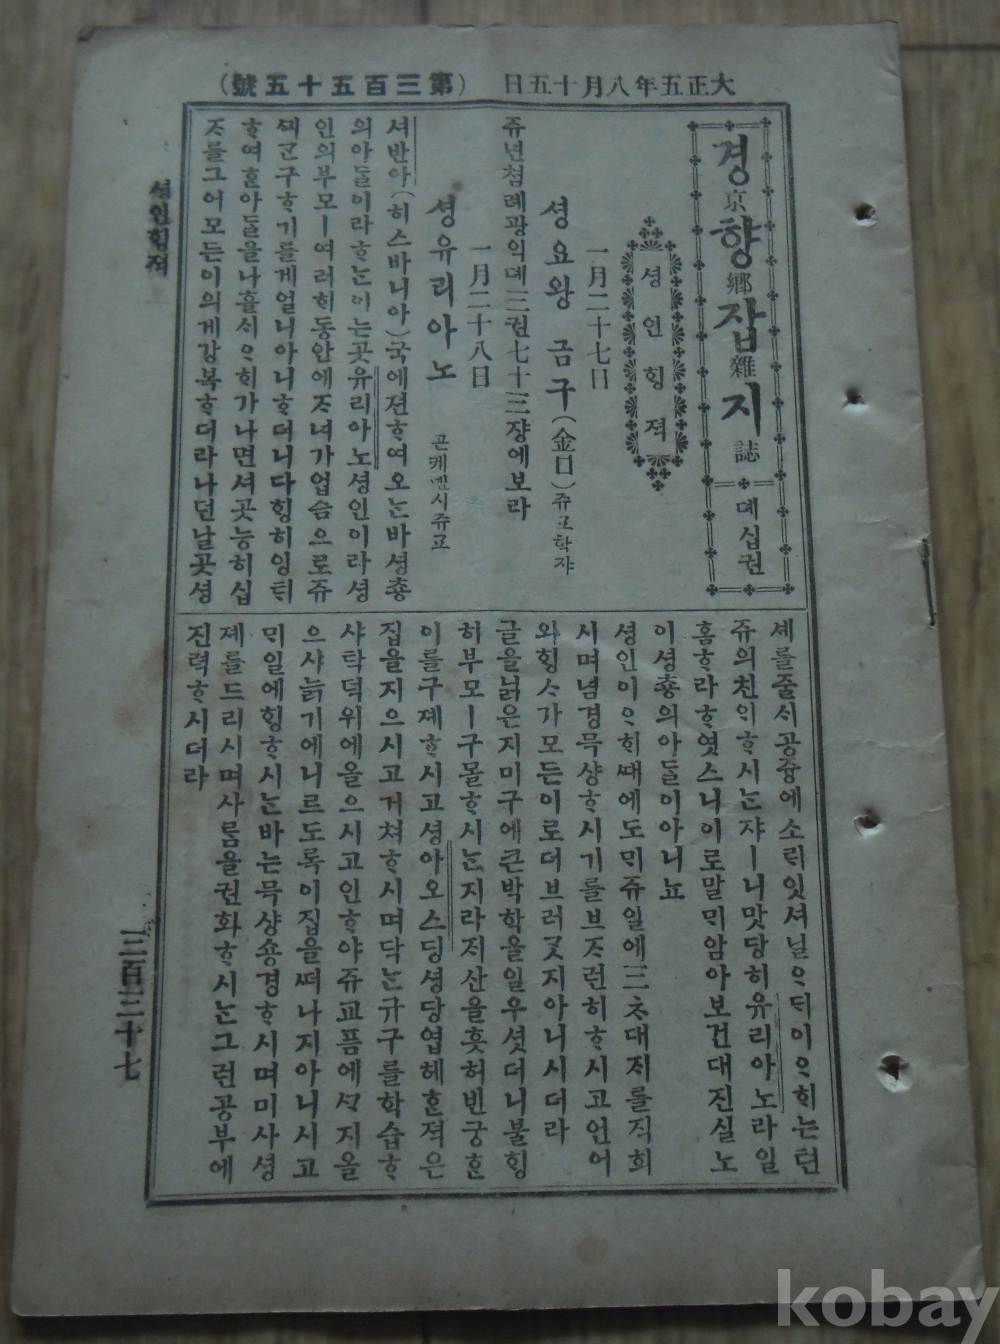 大正五年八月十五日 (第三百五十五號)
경京향鄕잡雜지誌 뎨십권
셩인ᄒᆡᆼ젹
一月二十七日
셩요왕 금구(金口)쥬교학쟈
쥬년쳠례광익뎨三권七十三쟝에보라
一月二十八日
셩유리아노 곤케멘시쥬교
셔반아(히스바니아)국에젼ᄒᆞ여오ᄂᆞᆫ바셩춍
의아ᄃᆞᆯ이라ᄒᆞᄂᆞᆫ이ᄂᆞᆫ곳유리아노셩인이라셩
인의부모ㅣ여러ᄒᆡ동안에ᄌᆞ녀가업슴으로쥬
ᄭᅴ간구ᄒᆞ기를게얼니아니ᄒᆞ더니다ᄒᆡᆼ히잉ᄐᆡ
ᄒᆞ여ᄒᆞᆫ아ᄃᆞᆯ을나흘ᄉᆡᄋᆞᄒᆡ가나면셔곳능히십
ᄌᆞ를그어모든이의게강복ᄒᆞ더라나던날곳셩
셰를줄ᄉᆡ공즁에소ᄅᆡ잇셔닐ᄋᆞᄃᆡ이ᄋᆞᄒᆡᄂᆞᆫ텬
쥬의친ᄋᆡᄒᆞ시ᄂᆞᆫ쟈ㅣ니맛당히유리아노라일
홈ᄒᆞ라ᄒᆞ엿스니이로말ᄆᆡ암아보건대진실노
이셩춍의아ᄃᆞᆯ이아니뇨
셩인이ᄋᆞᄒᆡᄯᅢ에도ᄆᆡ쥬일에三ᄎᆞ대ᄌᆡ를직희
시며념경믁샹ᄒᆞ시기를브ᄌᆞ런히ᄒᆞ시고언어
와ᄒᆡᆼᄉᆞ가모든이로더브러ᄀᆞᆺ지아니시더라
글을닑은지미구에큰박학을일우셧더니불ᄒᆡᆼ
히부모ㅣ구몰ᄒᆞ시ᄂᆞᆫ지라ᄌᆡ산을흣허빈궁ᄒᆞᆫ
이를구졔ᄒᆞ시고셩아오스딩셩당엽헤ᄒᆞᆫ젹은
집을지으시고거쳐ᄒᆞ시며닥ᄂᆞᆫ규구를학습ᄒᆞ
샤탁덕위에올으시고인ᄒᆞ야쥬교픔에ᄭᆞ지올
으샤늙기에니르도록이집을ᄯᅥ나지아니시고
ᄆᆡ일에ᄒᆡᆼᄒᆞ시ᄂᆞᆫ바ᄂᆞᆫ믁샹숑경ᄒᆞ시며미사셩
졔를드리시며사ᄅᆞᆷ을권화ᄒᆞ시ᄂᆞᆫ그런공부에
진력ᄒᆞ시더라
셩인ᄒᆡᆼ젹
三百三十七
kobay